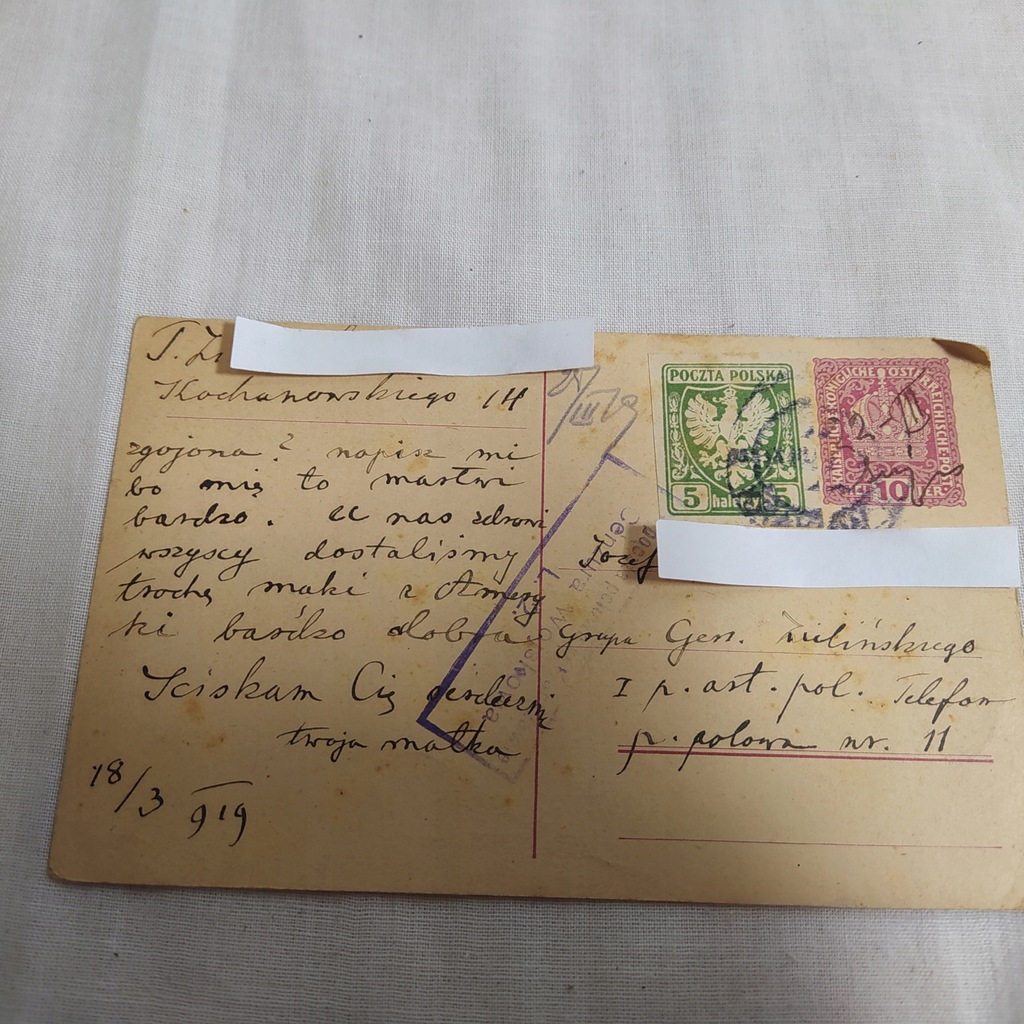 Kochanowskiego 14
zgojona? napisz mi
bo mię to martwi
bardzo. U nas zdrowi
wszyscy dostaliśmy
trochę mąki z Amery
ki bardzo dobra
Sciskam Cię serdecznie
twoja matka
18/3 919
21/III 19
POCZTA POLSKA
5 halerzy 5
KAISERLICHE KÖNIGLICHE ÖSTERREICHISCHE POST
10
Józef
Grupa Gen. Zielińskiego
I p. art. pol. Telefon
p. polowa nr. 11
Cenzura